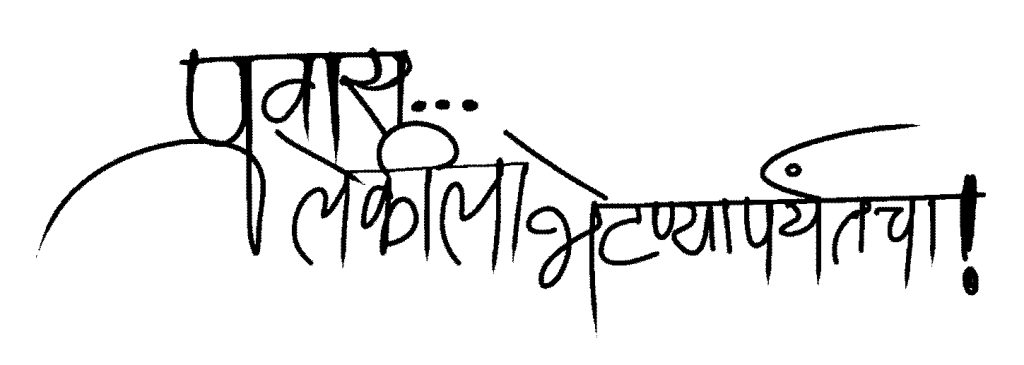 प्रवास...
लेकीला भेटण्यापर्यंतचा!